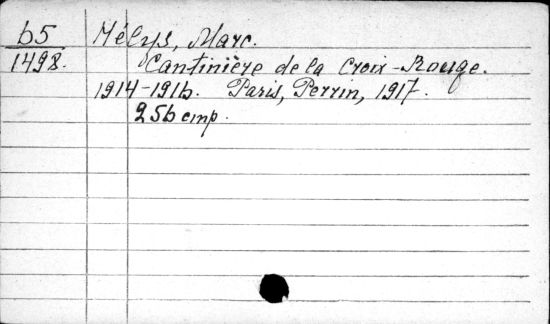 65 Mélys, Marc.
1498. Cantinière de la Croix-Rouge.
1914-1916. Paris, Perrin, 1917.
256 cmp.